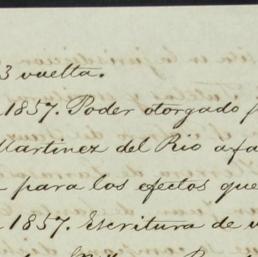 3 vuelta.
1857. Poder otorgado
Martinez del Rio a fa
para los efectos que
1857. Escritura de